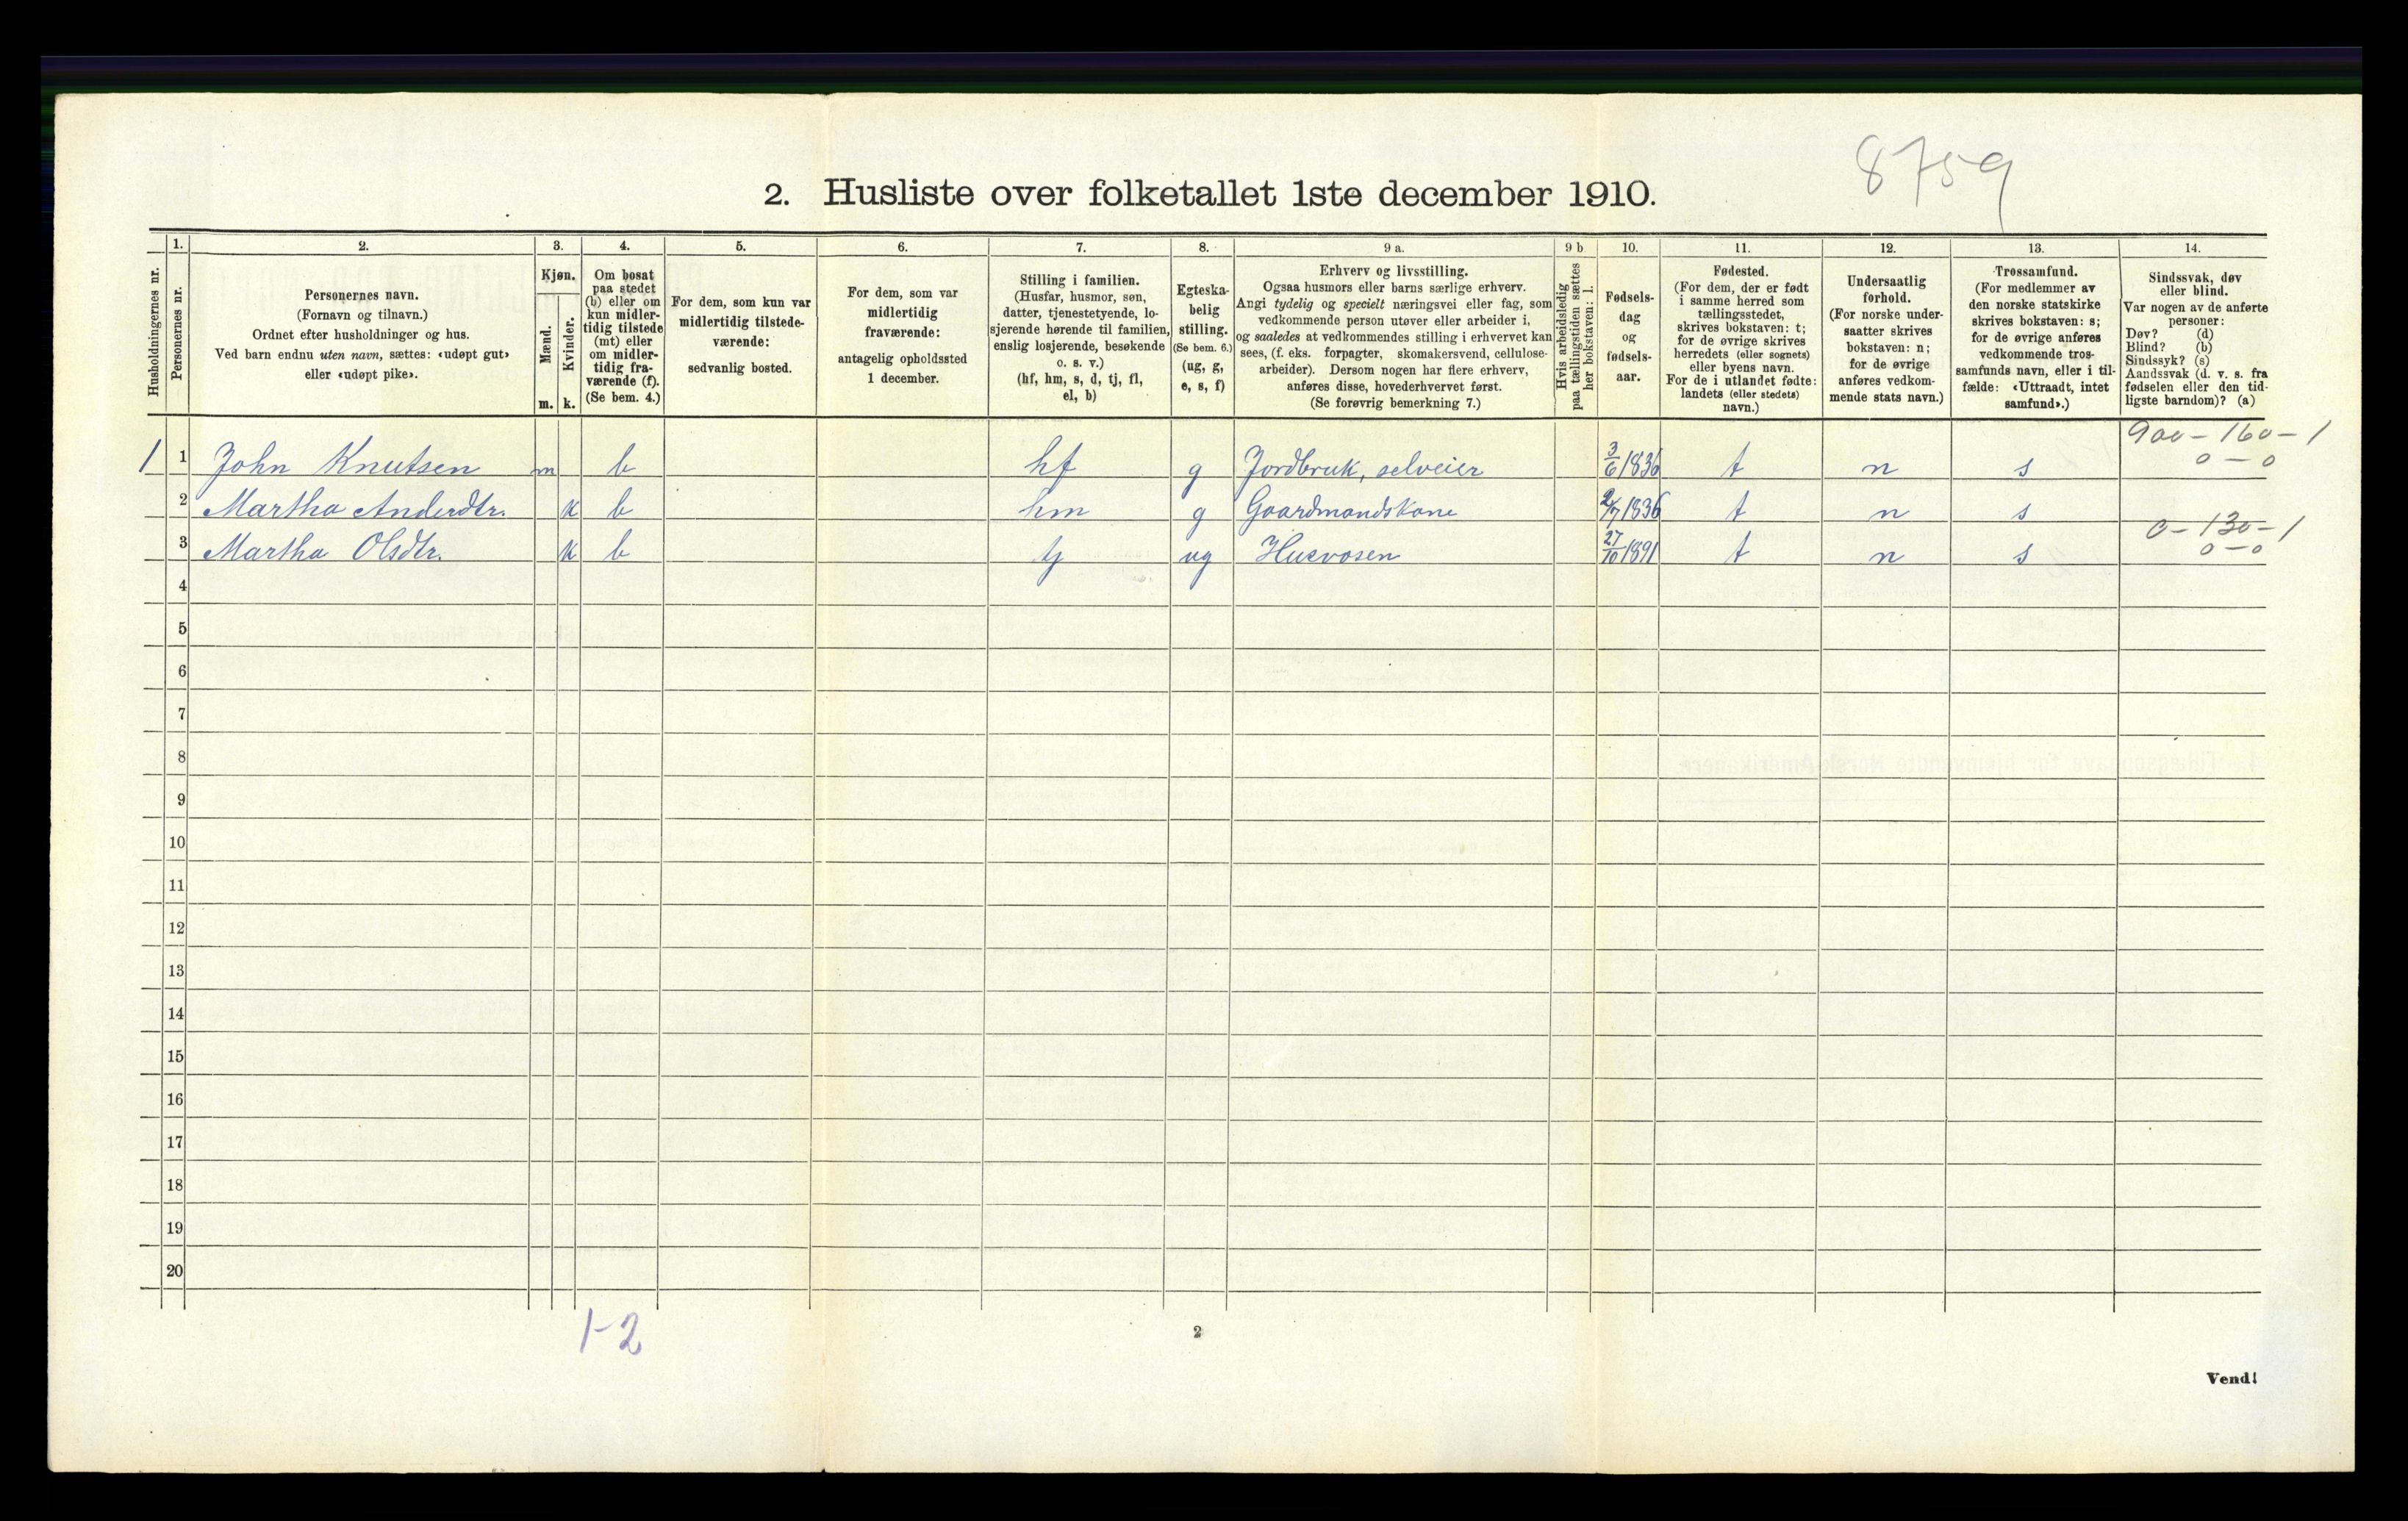 8759
2. Husliste over folketallet 1ste december 1910.
Husholdningernes nr.
1.
Personernes nr.
2.
Personernes navn.
(Fornavn og tilnavn.)
Ordnet efter husholdninger og hus.
Ved barn endnu uten navn, sættes: «udøpt gut»
eller «udøpt pike».
3.
Kjøn.
Mænd.
Kvinder.
m. k.
4.
Om bosat
paa stedet
(b) eller om
kun midler-
tidig tilstede
(mt) eller
om midler-
tidig fra-
værende (f).
(Se bem. 4.)
5.
For dem, som kun var
midlertidig tilstede-
værende:
sedvanlig bosted.
6.
For dem, som var
midlertidig
fraværende:
antagelig opholdssted
1 december.
7.
Stilling i familien.
(Husfar, husmor, søn,
datter, tjenestetyende, lo-
sjerende hørende til familien,
enslig losjerende, besøkende
o. s. v.)
(hf, hm, s, d, tj, fl,
el, b)
8.
Egteska-
belig
stilling.
(Se bem. 6.)
(ug, g,
e, s, f)
9 a.
Erhverv og livsstilling.
Ogsaa husmors eller barns særlige erhverv.
Angi tydelig og specielt næringsvei eller fag, som
vedkommende person utøver eller arbeider i,
og saaledes at vedkommendes stilling i erhvervet kan
sees, (f. eks. forpagter, skomakersvend, cellulose-
arbeider). Dersom nogen har flere erhverv,
anføres disse, hovederhvervet først.
(Se forøvrig bemerkning 7.)
9 b
Hvis arbeidsledig
paa tællingstiden sættes
her bokstaven: l.
10.
Fødsels-
dag
og
fødsels-
aar.
11.
Fødested.
(For dem, der er født
i samme herred som
tællingsstedet,
skrives bokstaven: t;
for de øvrige skrives
herredets (eller sognets)
eller byens navn.
For de i utlandet fødte:
landets (eller stedets)
navn.)
12.
Undersaatlig
forhold.
(For norske under-
saatter skrives
bokstaven: n;
for de øvrige
anføres vedkom-
mende stats navn.)
13.
Trossamfund.
(For medlemmer av
den norske statskirke
skrives bokstaven: s;
for de øvrige anføres
vedkommende tros-
samfunds navn, eller i til-
fælde: «Uttraadt, intet
samfund».)
14.
Sindssvak, døv
eller blind.
Var nogen av de anførte
personer:
Døv? (d)
Blind? (b)
Sindssyk? (s)
Aandssvak (d. v. s. fra
fødselen eller den tid-
ligste barndom)? (a)
900-160-1
0-0
1 1 John Knutsen m b hf g Jordbruk, selveier 3/6 1836 t n s
2 Martha Andersdtr. k b hm g Gaardmandskone 2/7 1836 t n s
0-130-1
0-0
3 Martha Olsdtr. k b tj ug 27/10 1891 t n s
4
5
6
7
8
9
10
11
12
13
14
15
16
17
18
19
20
1-2
2
Vend!